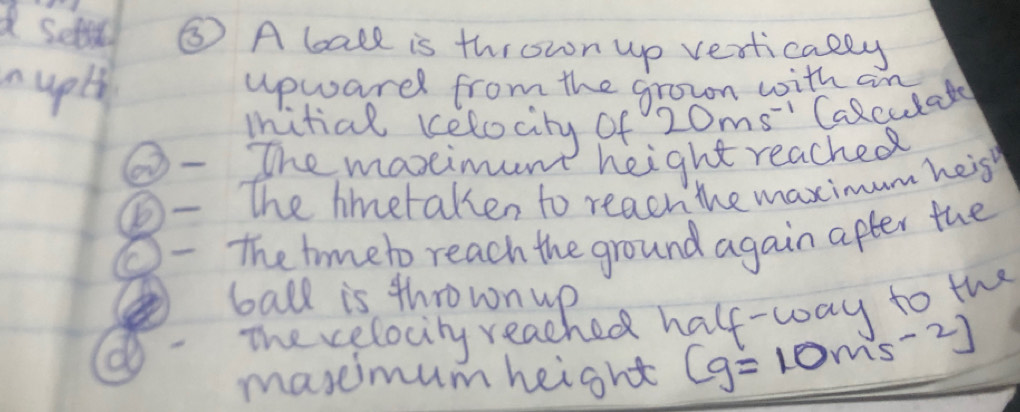 d Sett
③ A ball is thrown up vertically
n upti
upward from the grown with an
initial velocity of 20ms⁻¹ Calculate
ⓐ - The maximum height reached
ⓑ - The time taken to reach the maximum heigh
ⓒ - The time to reach the ground again after the
ball is thrown up
ⓓ - The velocity reached half-way to the
maximum height [g=10ms⁻²]